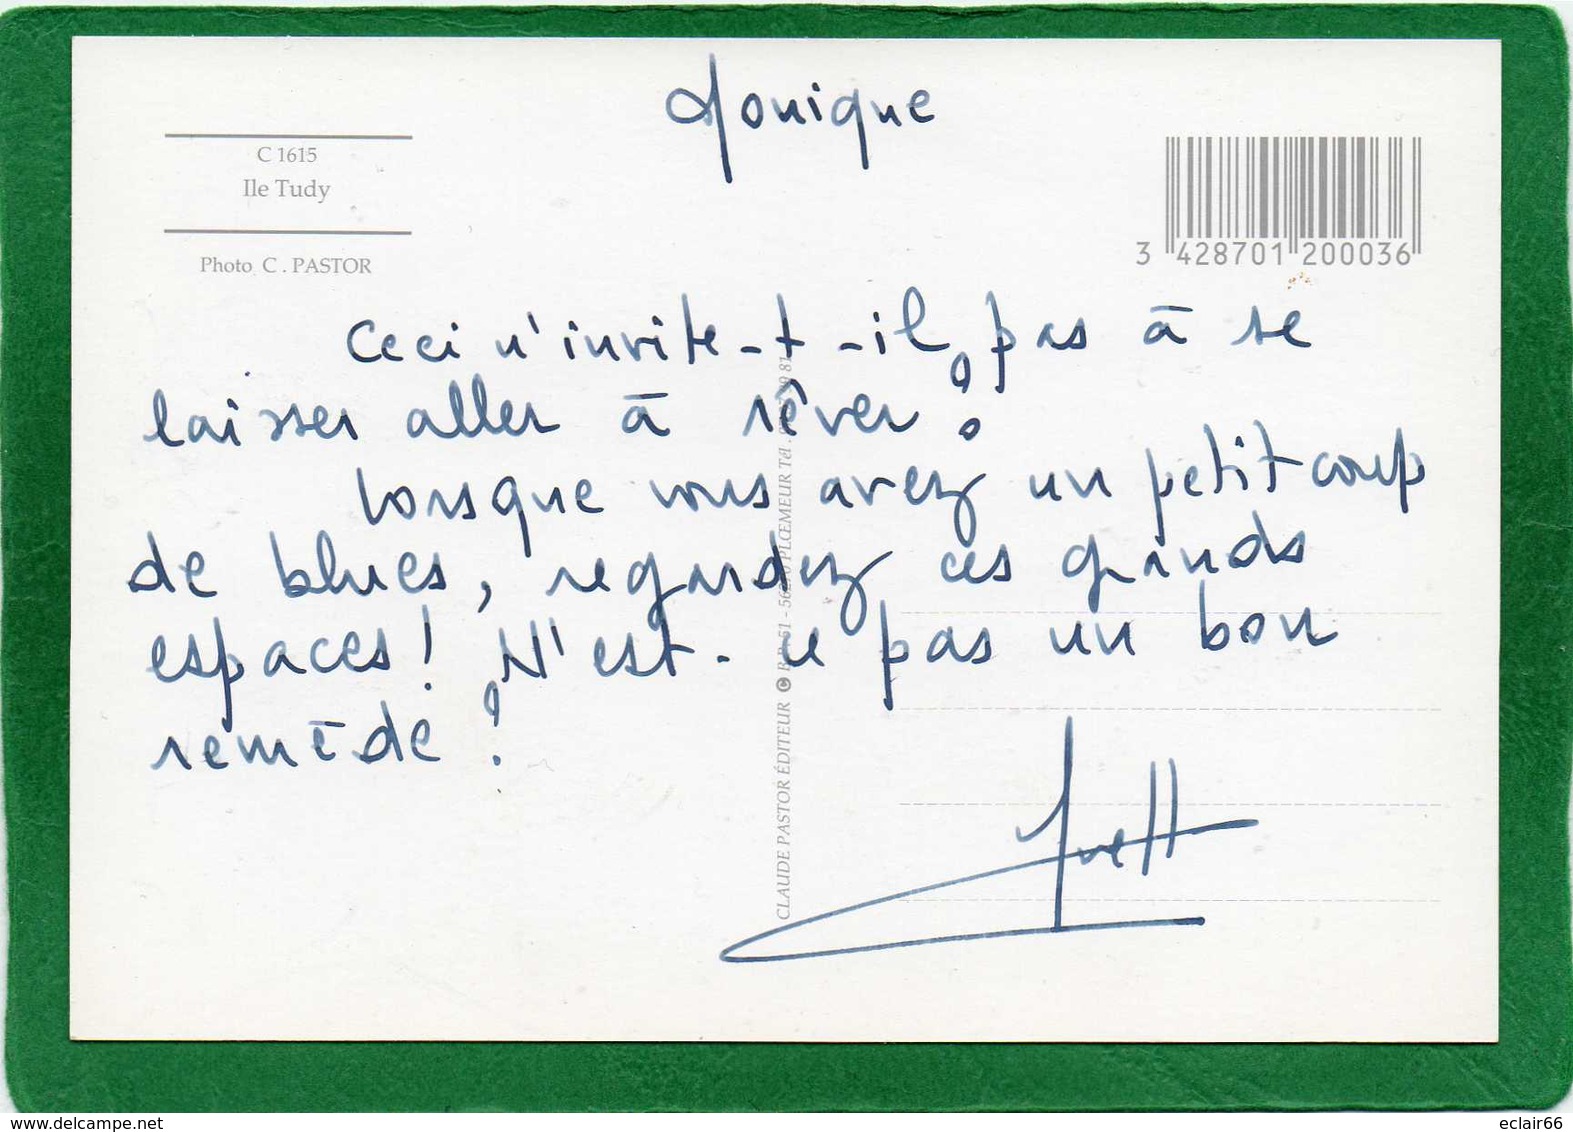 Monique
C 1615
Ile Tudy
Photo C. PASTOR
3 428701 200036
Ceci n'invite-t-il pas à se
laisser aller à rêver ?
Lorsque vous avez un petit coup
de blues, regardez ces grands
espaces ! N'est-ce pas un bon
remède ?
CLAUDE PASTOR ÉDITEUR © B.P. 51 - 56270 PLŒMEUR Tél.
eclair66